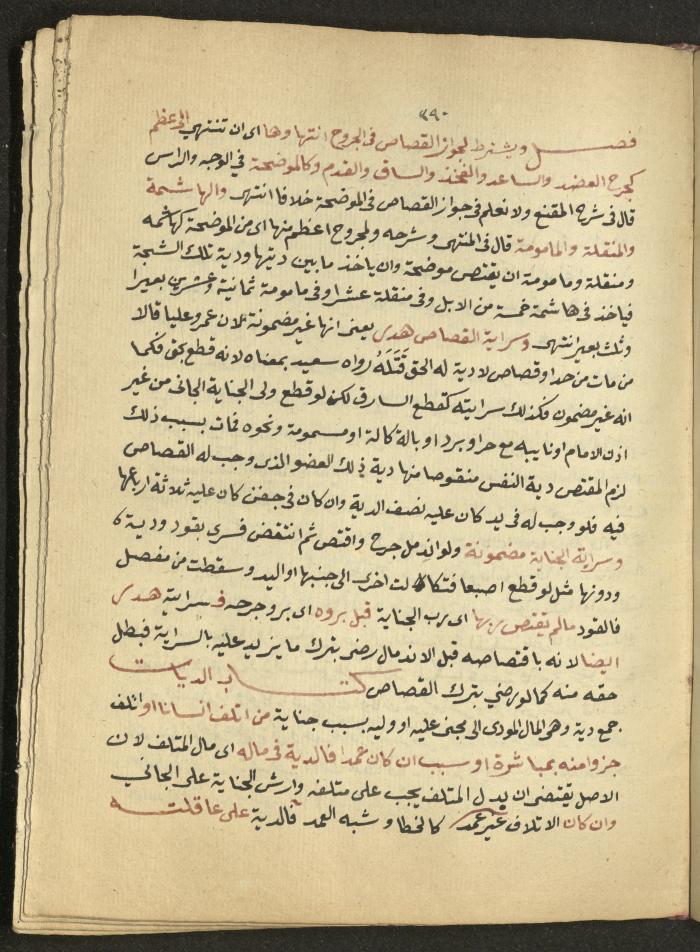 ٢٩٠
فصل ويشترط لجواز القصاص في الجروح انتهاوها اى ان تنتهي الى عظم
كجرح العضد والساعد والفخذ والساق والقدم وكالموضحة في الوجه والراس
قال في شرح المقنع ولا نعلم في جواز القصاص في الموضحة خلافا انتهى والهاشمة
والمنقلة والمامومة قال في المنتهى وشرحه ولمجروح اعظم منها اى من الموضحة كهاشمه
ومنقلة ومامومة ان يقتص موضحة وان ياخذ ما بين ديتها ودية تلك الشجة
فياخذ في هاشمة خمسة من الابل وفي منقلة عشرا وفي مامومة ثمانية وعشرين بعيرا
وثلث بعير انتهى وسراية القصاص هدر يعنى انها غير مضمونة لان عمر وعليا قالا
من مات من حد او قصاص لا دية له الحق قتله رواه سعيد بمعناه لانه قطع بحق فكما
انه غير مضمون فكذلك سرايته كقطع السارق لكن لو قطع ولى الجناية الجانى من غير
اذن الامام او نايبه مع حر او برد او بالة كالة او مسمومة ونحوه فمات بسبب ذلك
لزم المقتص دية النفس منقوصا منها دية ذلك العضو الذى وجب له القصاص
فيه فلو وجب له في يد كان عليه نصف الدية وان كان في جفن كان عليه ثلاثة ارباعها
وسراية الجناية مضمونة ولو اندمل جرح واقتص ثم انتقض فسرى بقود ودية
ودونها مثل لو قطع اصبعا فتاكلت اخرى الى جنبها او اليد وسقطت من مفصل
فالقود مالم يقتص ربها اى رب الجناية قبل بروه اى برو جرحه فسرايته هدر
ايضا لانه باقتصاصه قبل الاندمال رضى بترك ما يزيد عليه بالسراية فبطل
حقه منه كما لو رضي بترك القصاص كتاب الديات
جمع دية وهي المال المودى الى مجنى عليه او وليه بسبب جناية من اتلف انسانا او اتلف
جزوا منه بمباشرة او سبب ان كان عمدا فالدية في ماله اى مال المتلف لان
الاصل يقتضى ان بدل المتلف يجب على متلفه وارش الجناية على الجاني
وان كان الاتلاف غير عمد كالخطا وشبه العمد فالدية على عاقلته